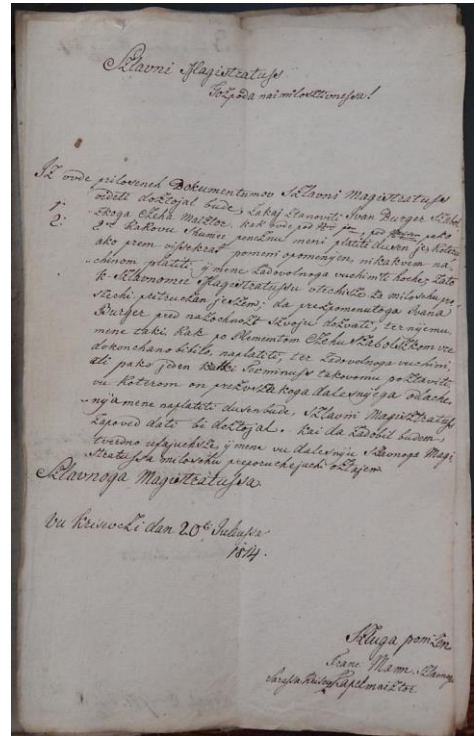 Szlavni Magistratuss
Goszpoda nai milosztivnessa!
Iz ovde priloseneh Dokumentumov Szlavni Magistratuss
videti dosztojal bude, zakaj Stanoviti Ivan Burger
1: Czeha Maisztor, kak ovde pod
2: kakovu Summu peneznu meni platiti dusen je, koteru
ako prem vissekrat pomeni opomenjen, nikakvem na-
chinom platiti, y mene zadovolnoga vuchiniti hoche; zato
k Szlavnomu Magistratussu vtechi sze za miloschu pro-
szechi prisziluan jeszem; da predzpomenutoga Ivana
Burger pred nazochnoszt szvoju dozvati, ter njemu,
mene taki, kak po Remetom Czehu Szabolszkom vre
dokonchano bi bilo, naplatiti, ter zadovolnoga vuchiniti,
ali pako jeden kratki Terminuss takovomu posztaviti,
vu koterom on prez vszakoga dalesnjega odlache-
nya mene naplatiti dusen bude, Szlavni Magisztratuss
zapoved dati bi dosztojal. kai da zadobil budem,
tverdno ufajuchisze, y mene vu dalesnju Szlavnoga Magi
stratussa miloschu preporuchejuchi osztajem
Szlavnoga Magistratussa
vu Krisevczi dan 20ga Juliussa
1814.
Szluga ponizen
Franc. Mann Szlavnoga
Kapelmaisztor